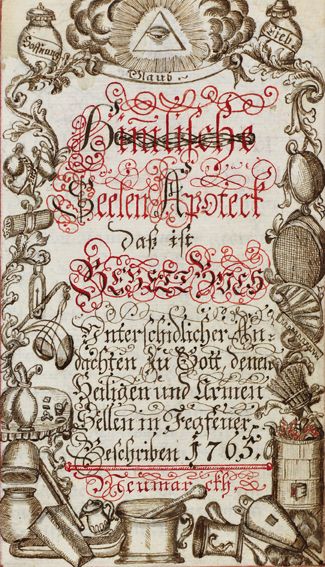 Hoffnung
Lieb
Glaub
Himlische
Seelen Apoteck
daß ist
Bebett Buch
Vnterschidlicher An-
dachten zu Gott, denen
Heiligen und Armen
Sellen in Fegfeuer.
Beschriben 1765.
Neumarckh.